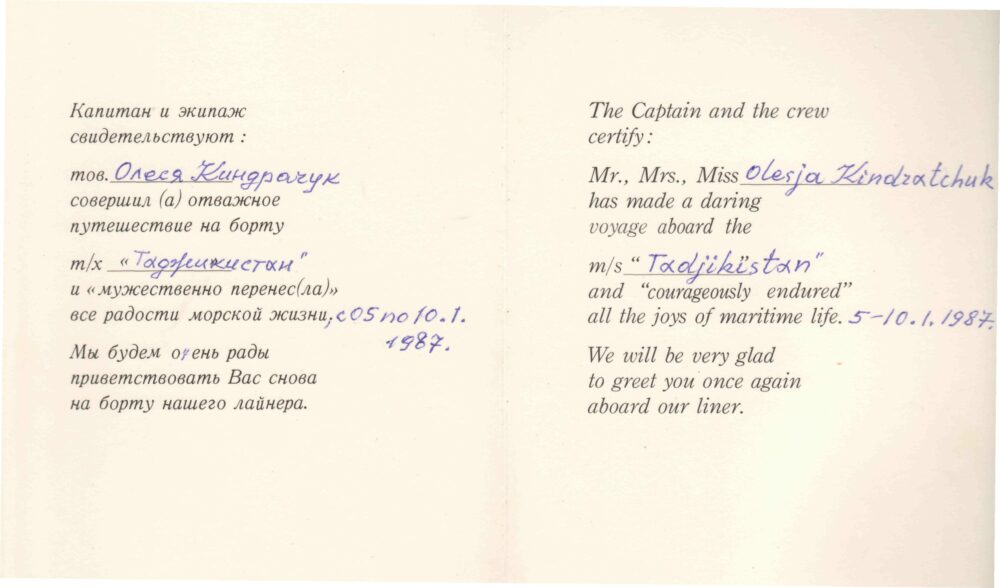 Капитан и экипаж
свидетельствуют :
тов. Олеся Киндрачук
совершил (а) отважное
путешествие на борту
т/х «Таджикистан"
и «мужественно перенес(ла)»
все радости морской жизни, с 05 по 10.1.
1987.
Мы будем очень рады
приветствовать Вас снова
на борту нашего лайнера.
The Captain and the crew
certify:
Mr., Mrs., Miss Olesja Kindratchuk
has made a daring
voyage aboard the
m/s “Tadjikistan”
and “courageously endured”
all the joys of maritime life. 5–10.1.1987.
We will be very glad
to greet you once again
aboard our liner.